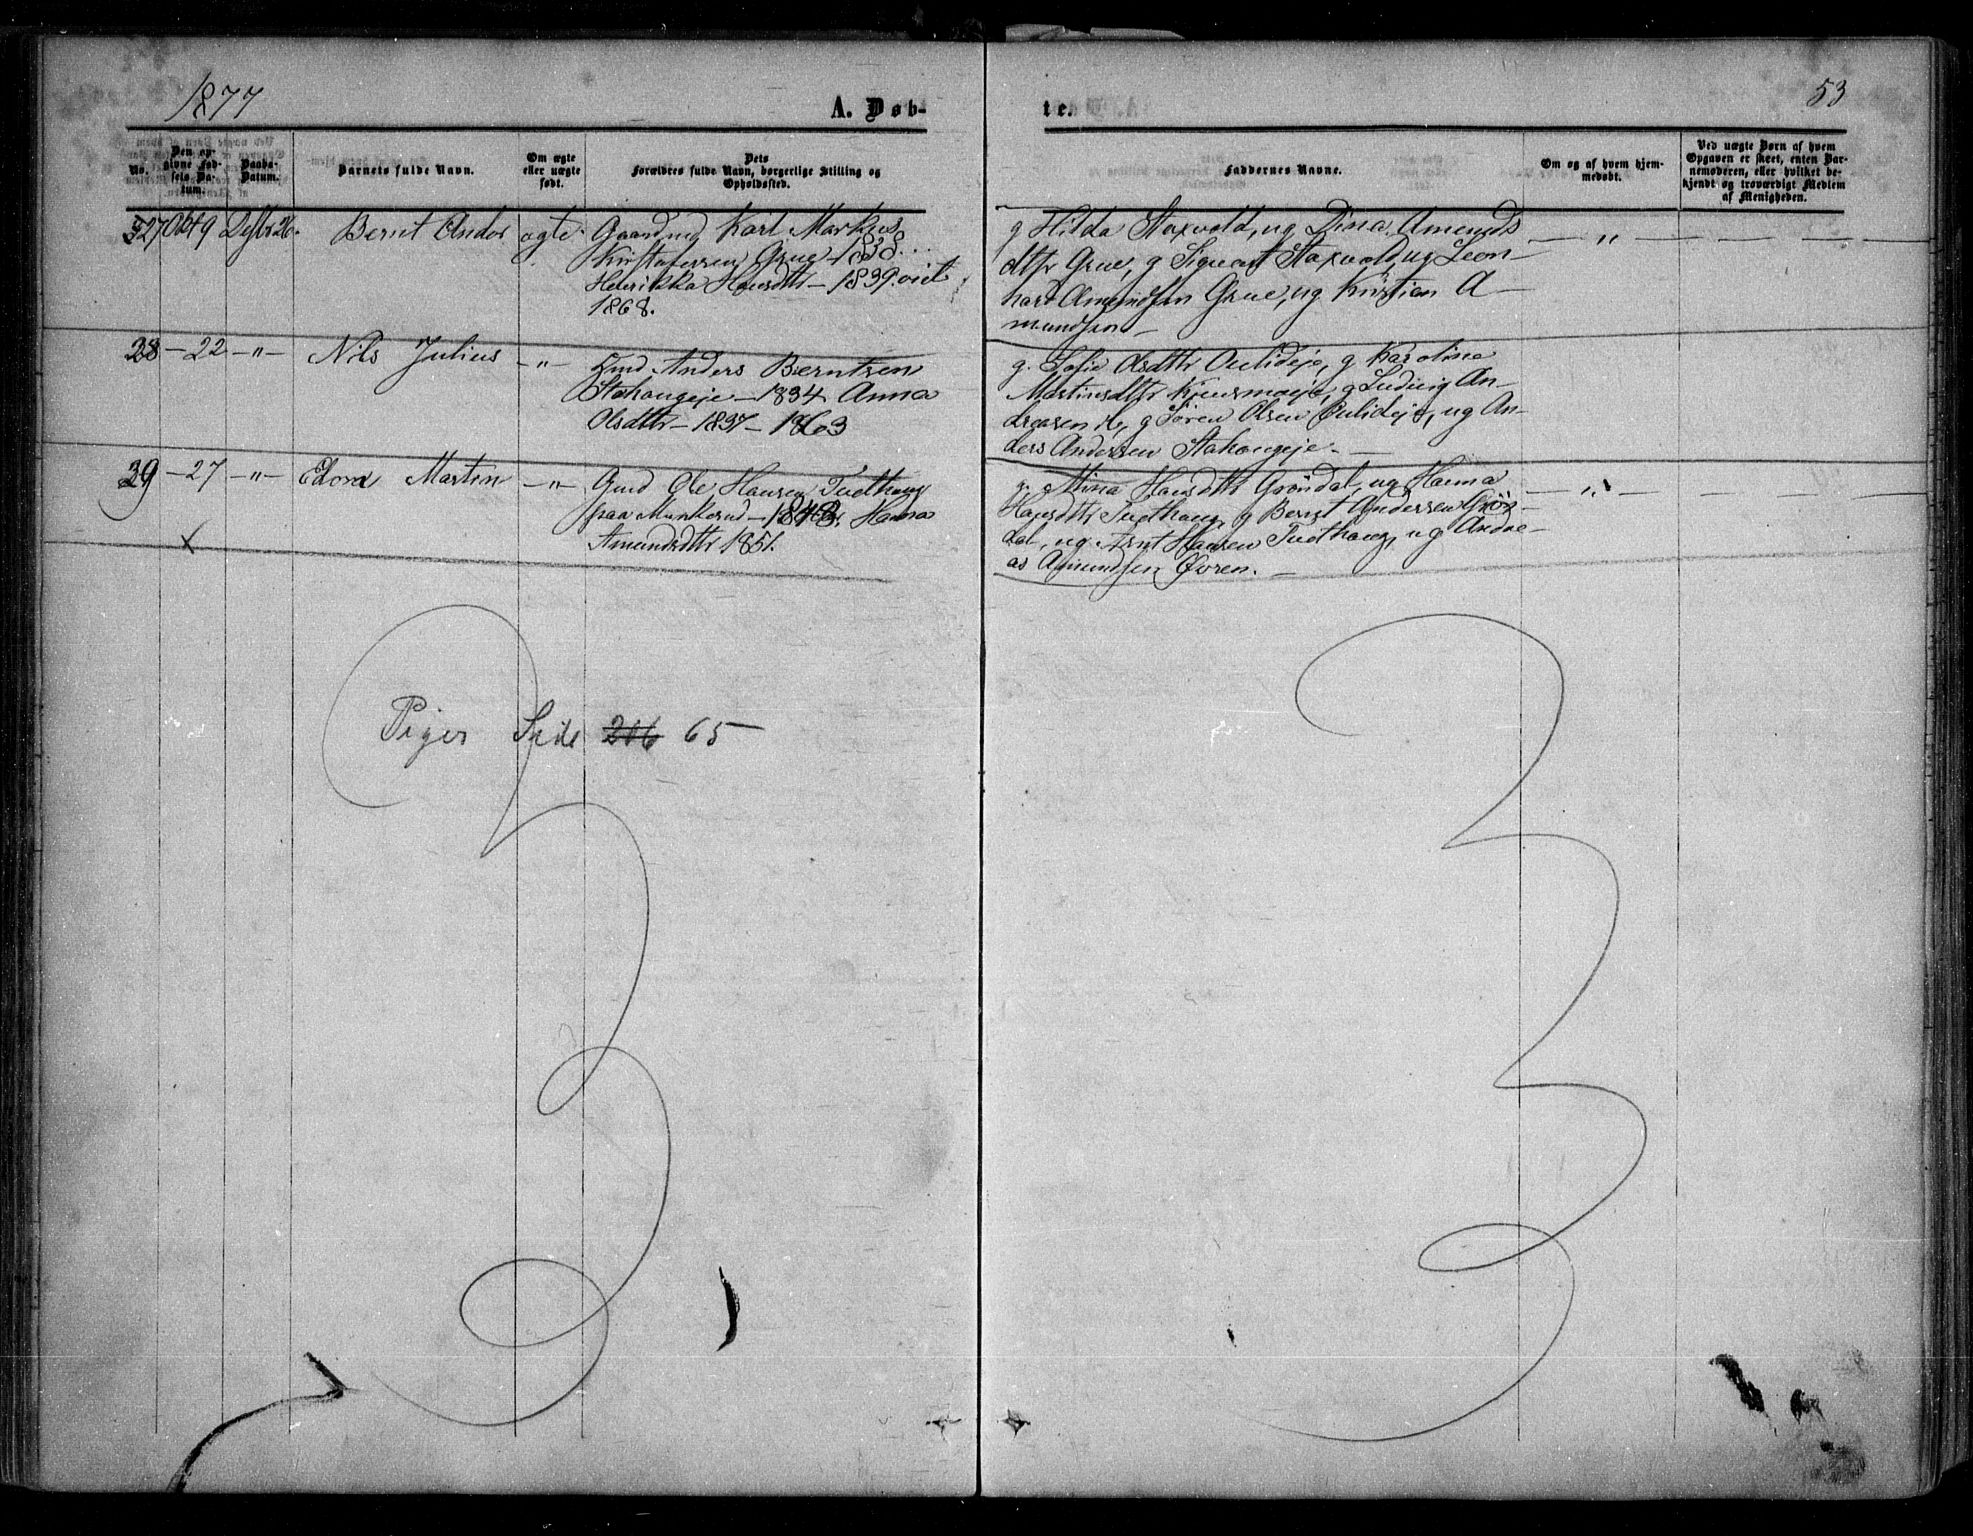 1877
A. Døb-
te.
53
No.
Den op-
givne Fød-
sels Da-
tum.
Daabs-
Datum.
Barnets fulde Navn.
Om ægte
eller uægte
født.
Dets
Forældres fulde Navn, borgerlige Stilling og
Opholdssted.
Faddernes Navne.
Om og af hvem hjem-
medøbt.
Ved uægte Børn af hvem
Opgaven er skeet, enten Bar-
nemoderen, eller hvilket be-
kjendt og troværdigt Medlem
af Menigheden.
27 Okt 19 Dsbr 26. Bernt Andor ægte. Gaardmd Karl Markus
Kristofersen Grue - 1838.
Henrikka Hansdtr - 1839. viet
1868.
g Hilda Staxvold, ug Dina Amunds
dtr Grue, g Sigvart Staxvold, ug Leon-
hard Amundsen Grue, ug Kristian A-
mundsen -
28 - 22 - " - Nils Julius - " - Hmd Anders Berntsen
Stahaugeje - 1834 Anna
Olsdtr - 1837 - 1863
g. Sofie Olsdtr Oulideje, g Karoline
Martinsdtr, g Ludvig An-
dreasen ib, g Søren Olsen Oulideje, ug An-
ders Andersen Stahaugeje -
39 - 27 - " - Edvard Martin - " - Gmd Ole Hansen Tudthaug
paa Munkerud - 1848. Hanna
Amundsdtr 1851.
g. Mina Hansdtr Grøndal, ug Hanna
Hansdtr Tudthaug, g Bernt Andersen Grøn-
dal, ug Arnt Hansen Tudthaug, ug Andre-
as Amundsen Øvren. -
Piger Side 206 65